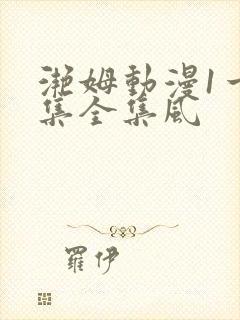 瀧姆動漫1一
集全集風
羅伊